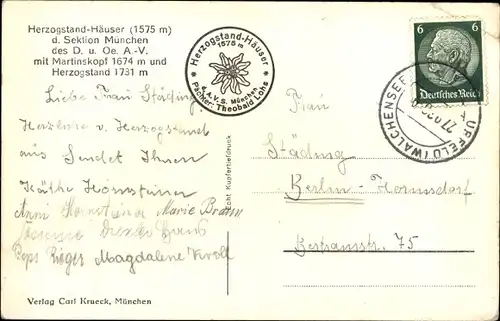 Herzogstand-Häuser (1575 m)
d. Sektion München
des D. u. Oe. A.-V.
mit Martinskopf 1674 m und
Herzogstand 1731 m
Herzogstand-Häuser
1575 m
d. A.V. S. München
Pächter: Theobald Lohs
6 6
Deutsches Reich
URFELD (WALCHENSEE)
Liebe Frau Städing
vom Herzogstand
aus sendet Ihnen
Käthe Hornsteiner
Anni Hornsteiner Marie Braun
Hans
Magdalene
Frau
Städing
Berlin-Hermsdorf
75
Echt Kupfertiefdruck
Verlag Carl Krueck, München